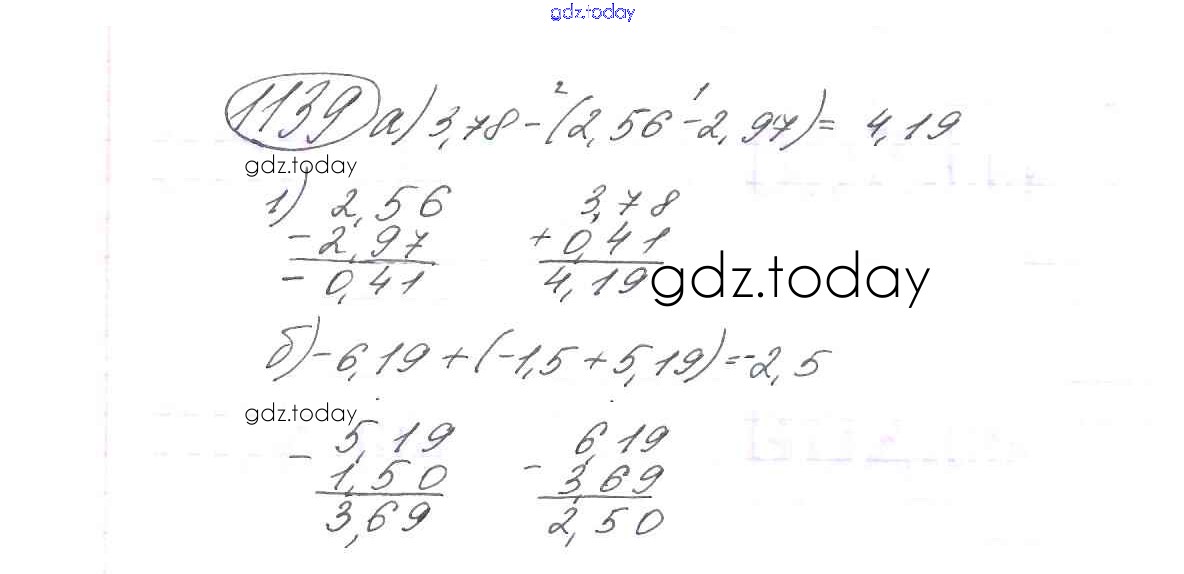 gdz.today
1139 а) 3,78 - (2,56 - 2,97) = 4,19
2 1
gdz.today
1) 2,56 3,78
- 2,97 + 0,41
- 0,41 4,19 gdz.today
б) -6,19 + (-1,5 + 5,19) = -2,5
gdz.today
- 5,19 - 6,19
1,50 3,69
3,69 2,50